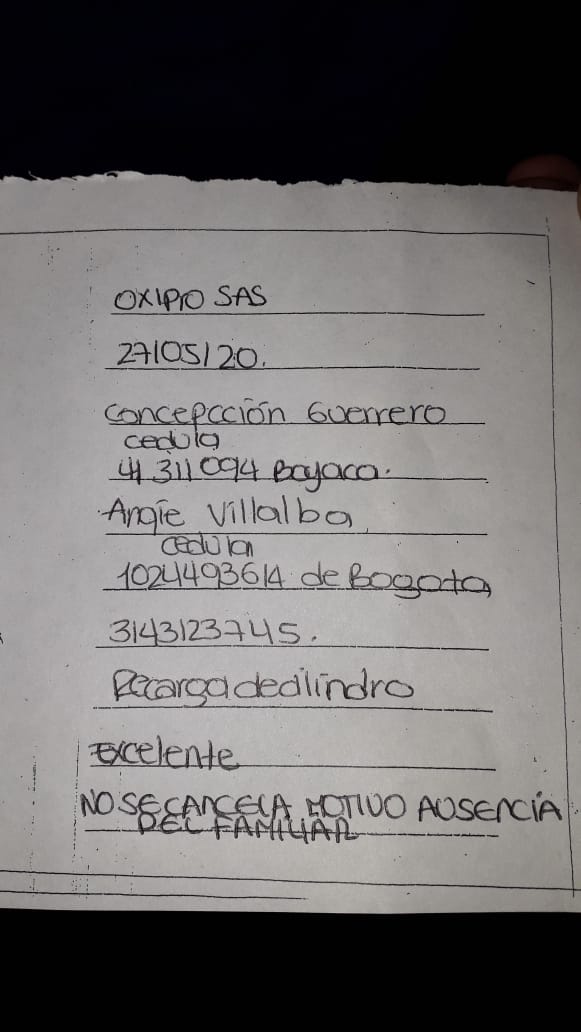 OXIPRO SAS
27/05/20.
Concepcción Guerrero
cedula
41 311 094 Boyaca.
Angie Villalba
cedula
1024493614 de Bogota
3143123745.
Recarga de cilindro
Excelente
NO SE CANCELA MOTIVO AUSENCIA
DEL FAMILIAR